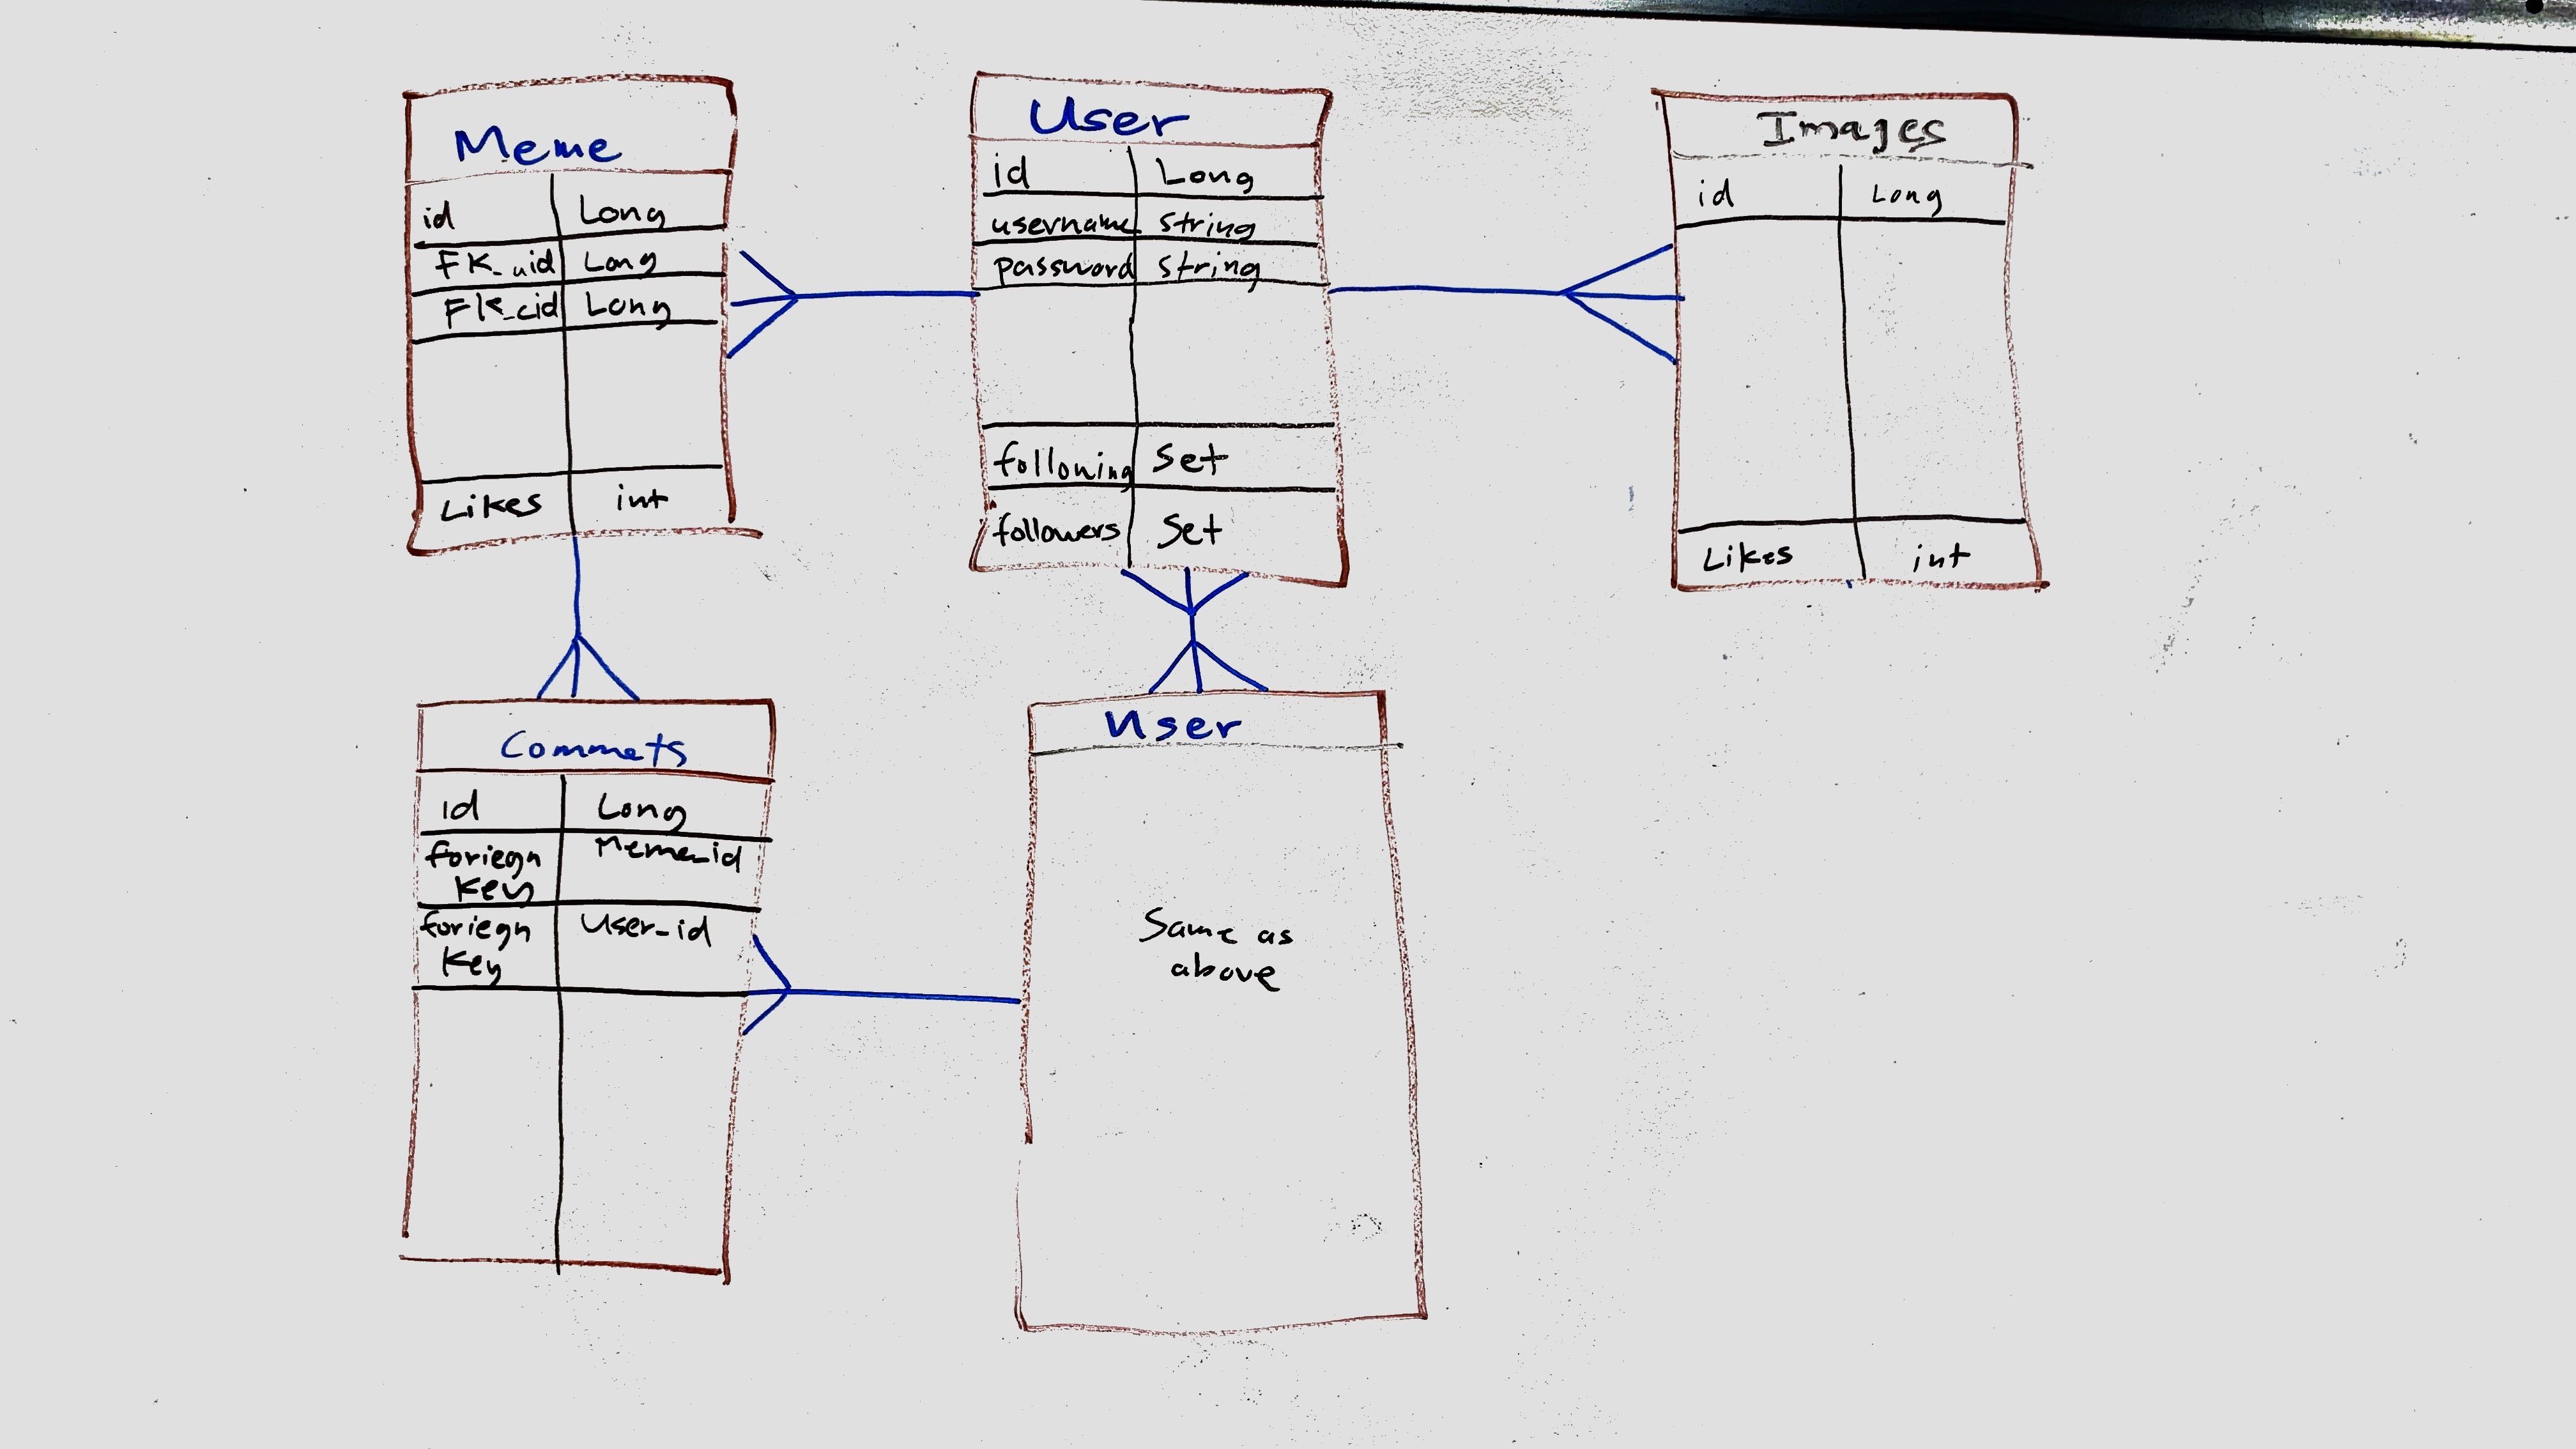 Meme
id Long
FK_uid Long
FK_cid Long
Likes int
User
id Long
username string
password string
following Set
followers Set
Images
id Long
Likes int
Commets
id Long
foriegn Meme_id
key
foriegn User_id
key
User
Same as
above